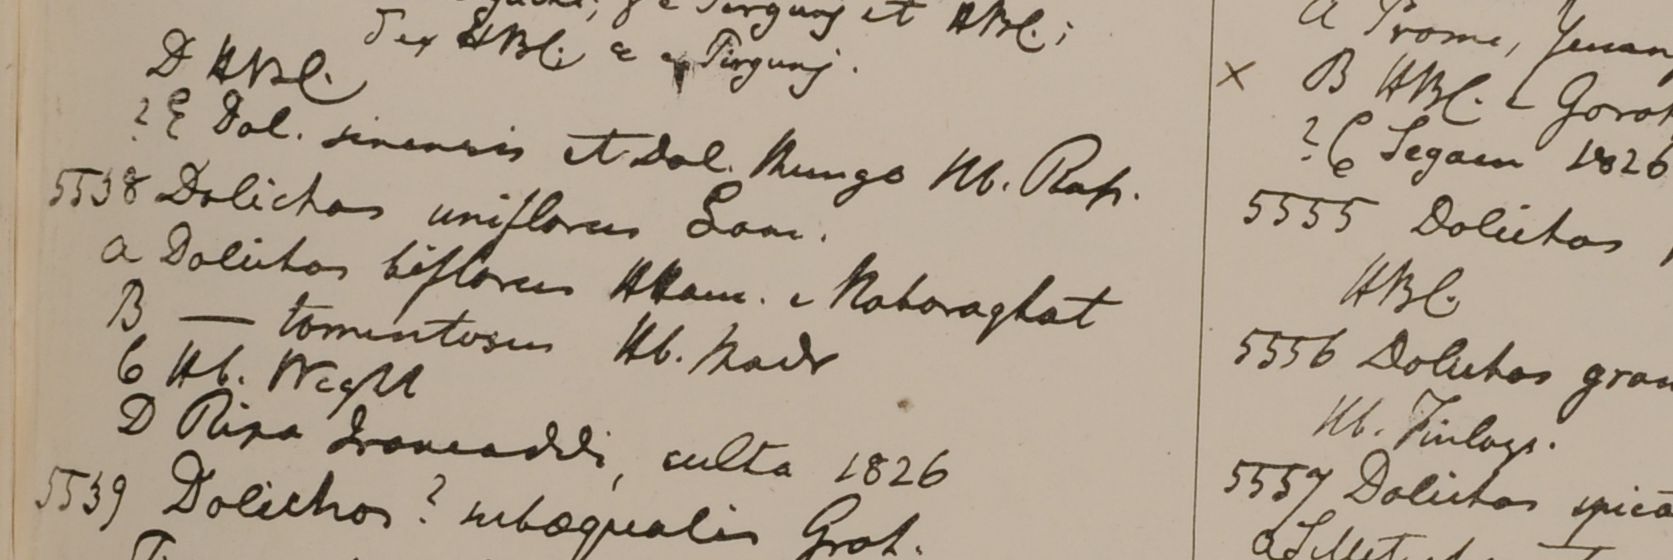 δ ex HBC. & e Tirgunj.
D HBC.
? E Dol. sinensis et Dol. Mungo Hb. Rox.
5538 Dolichos uniflorus Lam.
a Dolichos biflorus HHam. e Nathoraghat
B — tomentosus Hb. Madr
C Hb. Wight
D Ripa Irawaddi, culta 1826
5539 Dolichos ? subaequalis Grah.
a Prome,
× B HBC. e
? C Segaen 1826
5555 Dolichos
HBC.
5556 Dolichos
Hb. Finlays.
5557 Dolichos
a Sillet